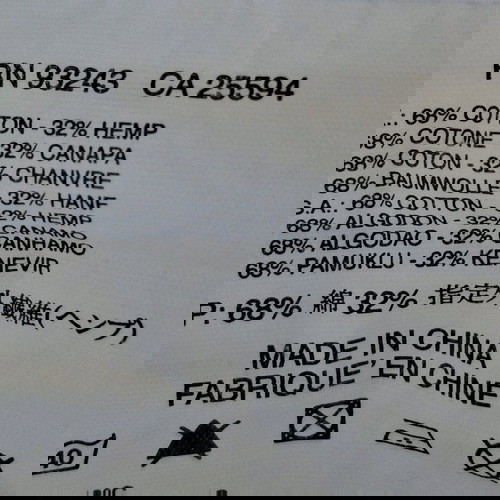 RN 93243 CA 25594
TON - 32% HEMP
32% CANAPA
% CHANVRE
32% HANF
2% HEMP
CAÑAMO
CANHAMO
KENEVIR
.: 68% COT
68% COTONE
68% COTON - 32
68% BAUMWOLLE
S.A.: 68% COTTON - 
68% ALGODON - 32%
68% ALGODAO - 32%
68% PAMUKLU - 32% KE
P: 68% 綿 32% 指定
繊維(ヘンプ)
MADE IN CHINA
FABRIQUE EN CHINE
40